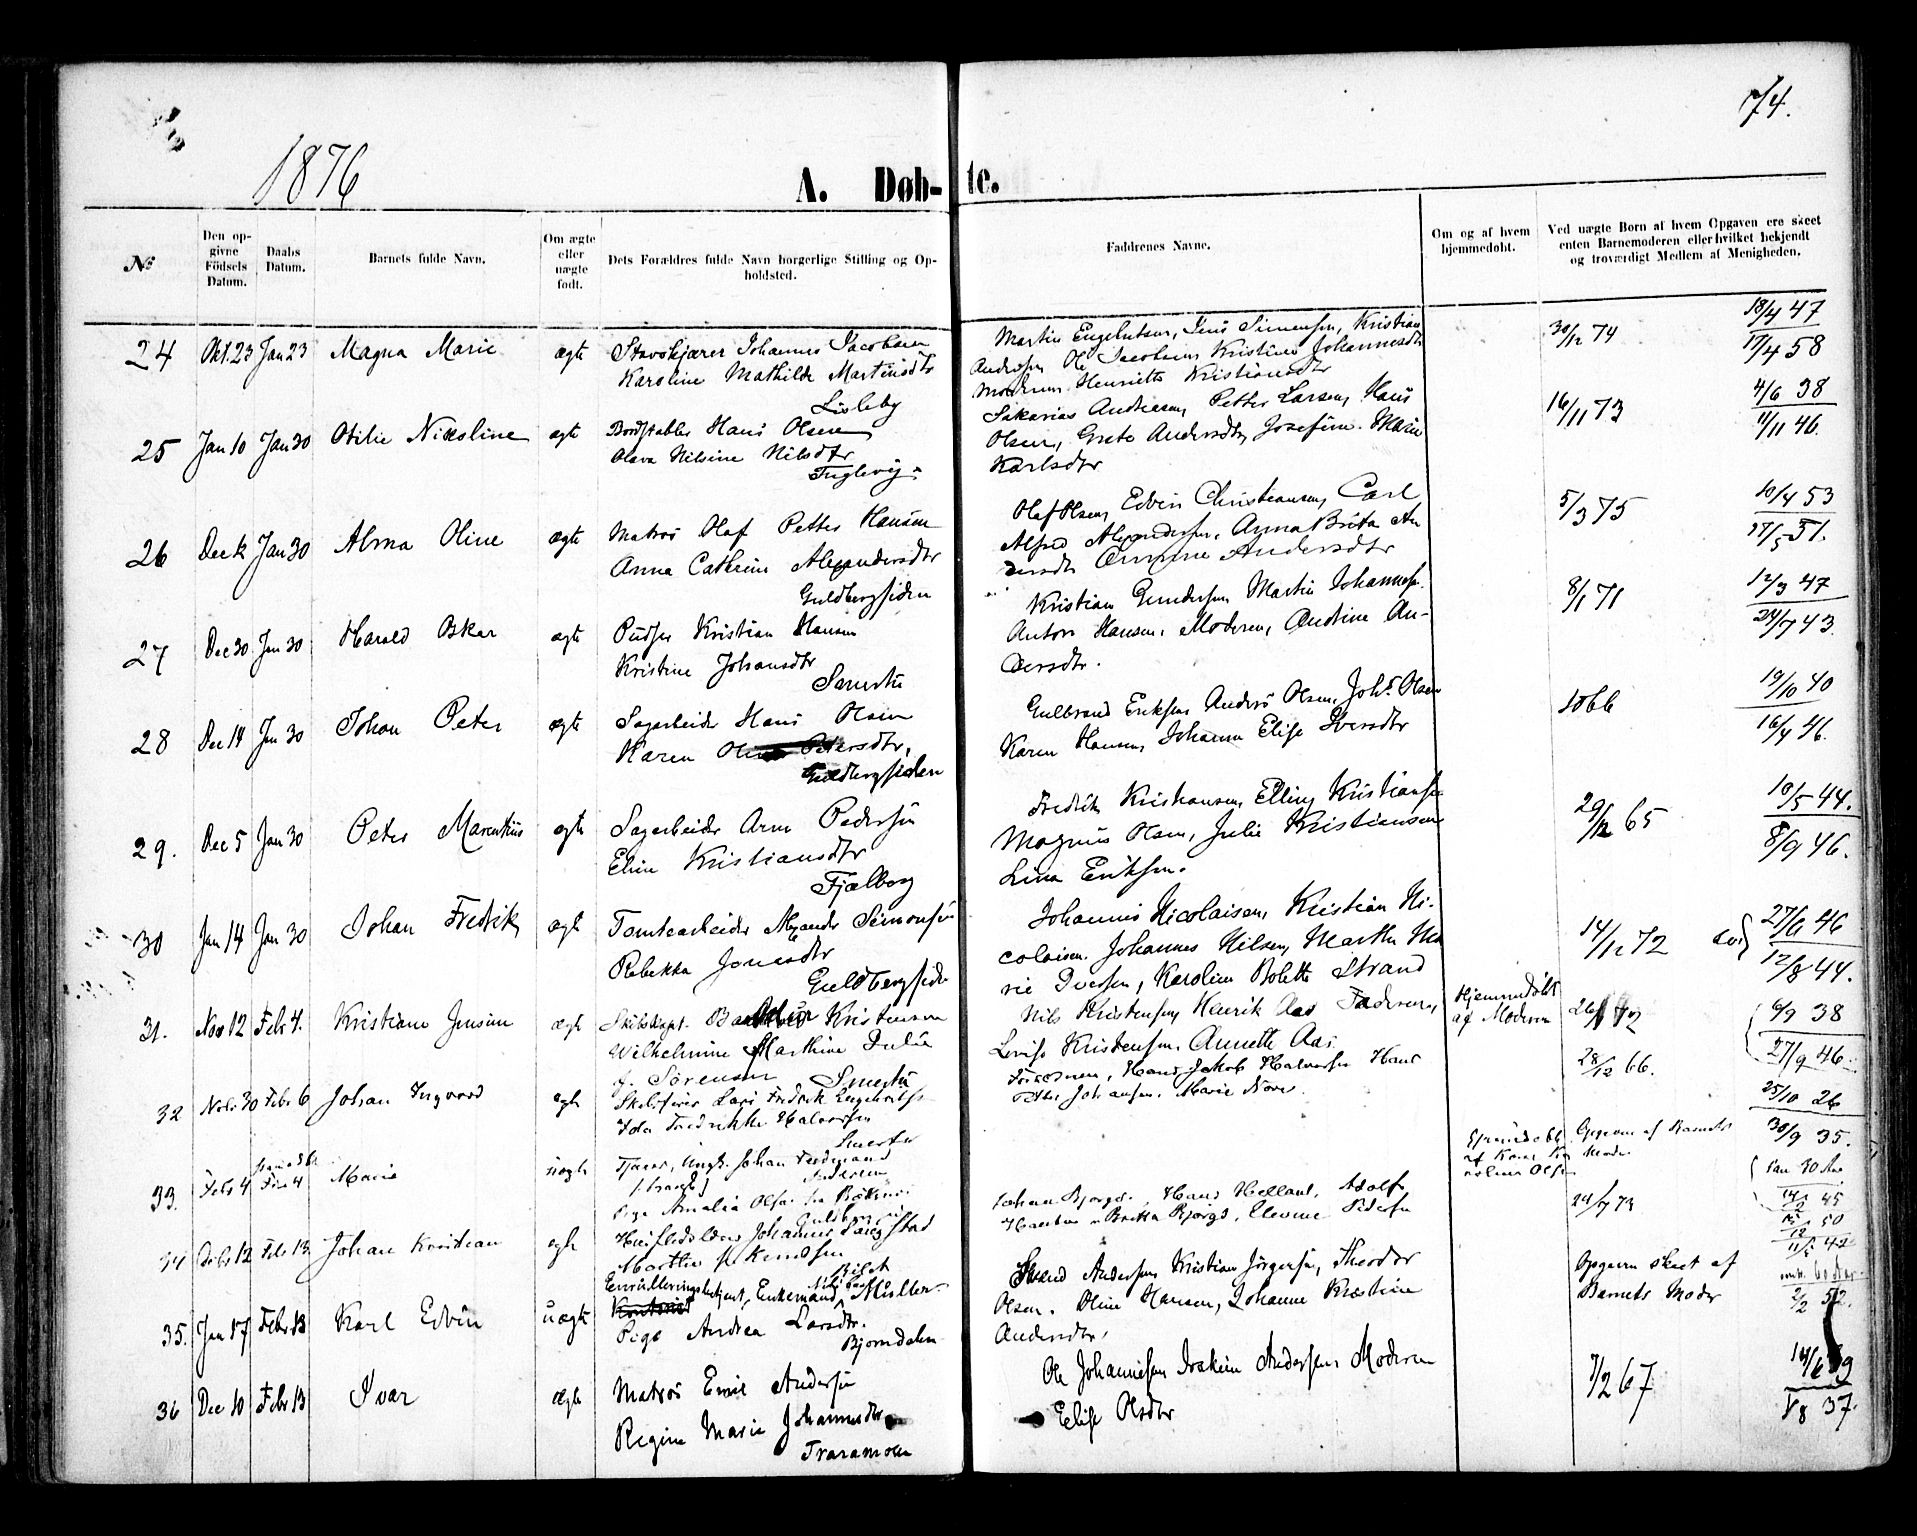 74.
1876
A. Døb- te.
№
Den op-
givne
Födsels
Datum.
Daabs
Datum.
Barnets fulde Navn.
Om ægte
eller
uægte
født.
Dets Forældres fulde Navn borgerlige Stilling og Op-
holdsted.
Faddrenes Navne.
Om og af hvem
hjemmedøbt.
Ved uægte Born af hvem Opgaven ere skeet
enten Barnemoderen eller hvilket bekjendt
og troværdigt Medlem af Menigheden.
24 Okt. 23 Jan 23 Magna Marie ægte Johannes Jacobsen
Karoline Mathilde Martinsdtr
Lisleby
Martin Engebretsen, Jens Simensen, Kristian
Andersen Ole Jacobsen Kristine Johannesdtr
Moderen Henriette Kristiansdtr
30/12 74
18/4 47
17/4 58
25 Jan 10 Jan 30 Otilie Nicoline ægte Bordstabler Hans Olsen
Olava Nilsine Nilsdtr
Fuglevig
Sakarias Andreasen, Petter Larsen, Hans
Olsen, Grete Andersdtr, Josefine Marie
Karlsdtr
16/11 73
4/6 38
11/11 46.
26 Jan 30 Alma Oline ægte Matros Olaf Petter Hansen
Anna Cathrine Alexandersdtr
Guldbergsiden
Olaf Olsen, Edvin Christiansen, Carl
Alfred Alexandersen, Anna Brita An
dersdtr Andersdtr
5/3 75
10/4 53
27/5 51.
27 Dec 30 Jan 30 Harald Oskar ægte Pudser Kristian Hansen
Kristine Johansdtr
Smertu
Kristian Gundersen Martin Johannesen
Anton Hansen, Moderen, Andrine An-
dersdtr.
8/1 71
12/3 47
24/7 43.
28 Dec 14 Jan 30 Johan Peter ægte Sagarbeider Hans Olsen
Karen Petersdtr,
Guldbergsiden
Gulbrand Eriksen Anders Olsen, Johs Olsen
Karen Hansen, Johanne Elise Iversdtr
1866
19/10 40
16/4 46.
29. Dec 5 Jan 30 Peter Marentius ægte Sagarbeider Arne Pedersen
Eline Kristiansdtr
Fjælberg
Fredrik Kristiansen, Elling Kristiansen
Magnus Olsen, Julie Kristiansen
Lina Eriksen.
29/12 65
10/5 44.
8/9 46.
30 Jan 14 Jan 30 Johan Fredrik ægte Tomtearbeider Alexander Simonsen
Rebekka Jonasdtr
Guldbergsiden
Johannes Nicolaisen, Kristian Ni-
colaisen. Johannes Nilsen, Marthe Ma
rie Iversen, Karoline Bolette Strand
14/12 72
27/6 46
12/8 44.
31. Nov 12 Febr 4. Kristiane Jensine ægte Skibskapt. Kristensen
Wilhelmine Marthine Julie
f. Sørensen Smertu
Nils Kristensen, Henrik Aas Faderen,
Lovise Kristensen. Annette Aas
Hjemmedøbt
af Moderen
6/9 38
27/9 46.
32 Nvbr 30 Febr 6 Johan Ingvard ægte Skibsfører Lars Fredrik Engebretsen
Ida Fredrikke Halvorsen
Smertu
Forældrene, Hans Jakob Halvorsen Hans
Petter Johansen. Marie
28/12 66.
25/10 26
30/9 35.
33. Febr 4 Marie uægte Johan Ferdinand
Andersen
Pige Amalia Olsen fra
Hjemmedøbt
Opgaven af Barnets
Moder
34 Febr 13 Johan Kristian ægte Johannes
Marthe Knudsen
Johan Bjørge. Hans Helland. Adolf
Britta Bjørge, Elevine Pedersen
24/7 73
35. Jan 17 Febr 13 Karl Edvin uægte Enrulleringsbetjent, Enkemand, Müller
Pige Andrea Larsdtr.
Bjørndalen
Svend Andersen Kristian Jørgensen, Theodor
Olsen. Oline Hansen, Johanne Kristine
Andersdtr.
Opgaven skeet af
Barnets Moder
2/2 52.
36 Dec 10 Febr 13 Ivar ægte Matros Emil Andersen
Regine Marie Johannesdtr
Traramoen
Ole Johannesen Joakim Andersen Moderen
Elise Olsdtr
7/2 67